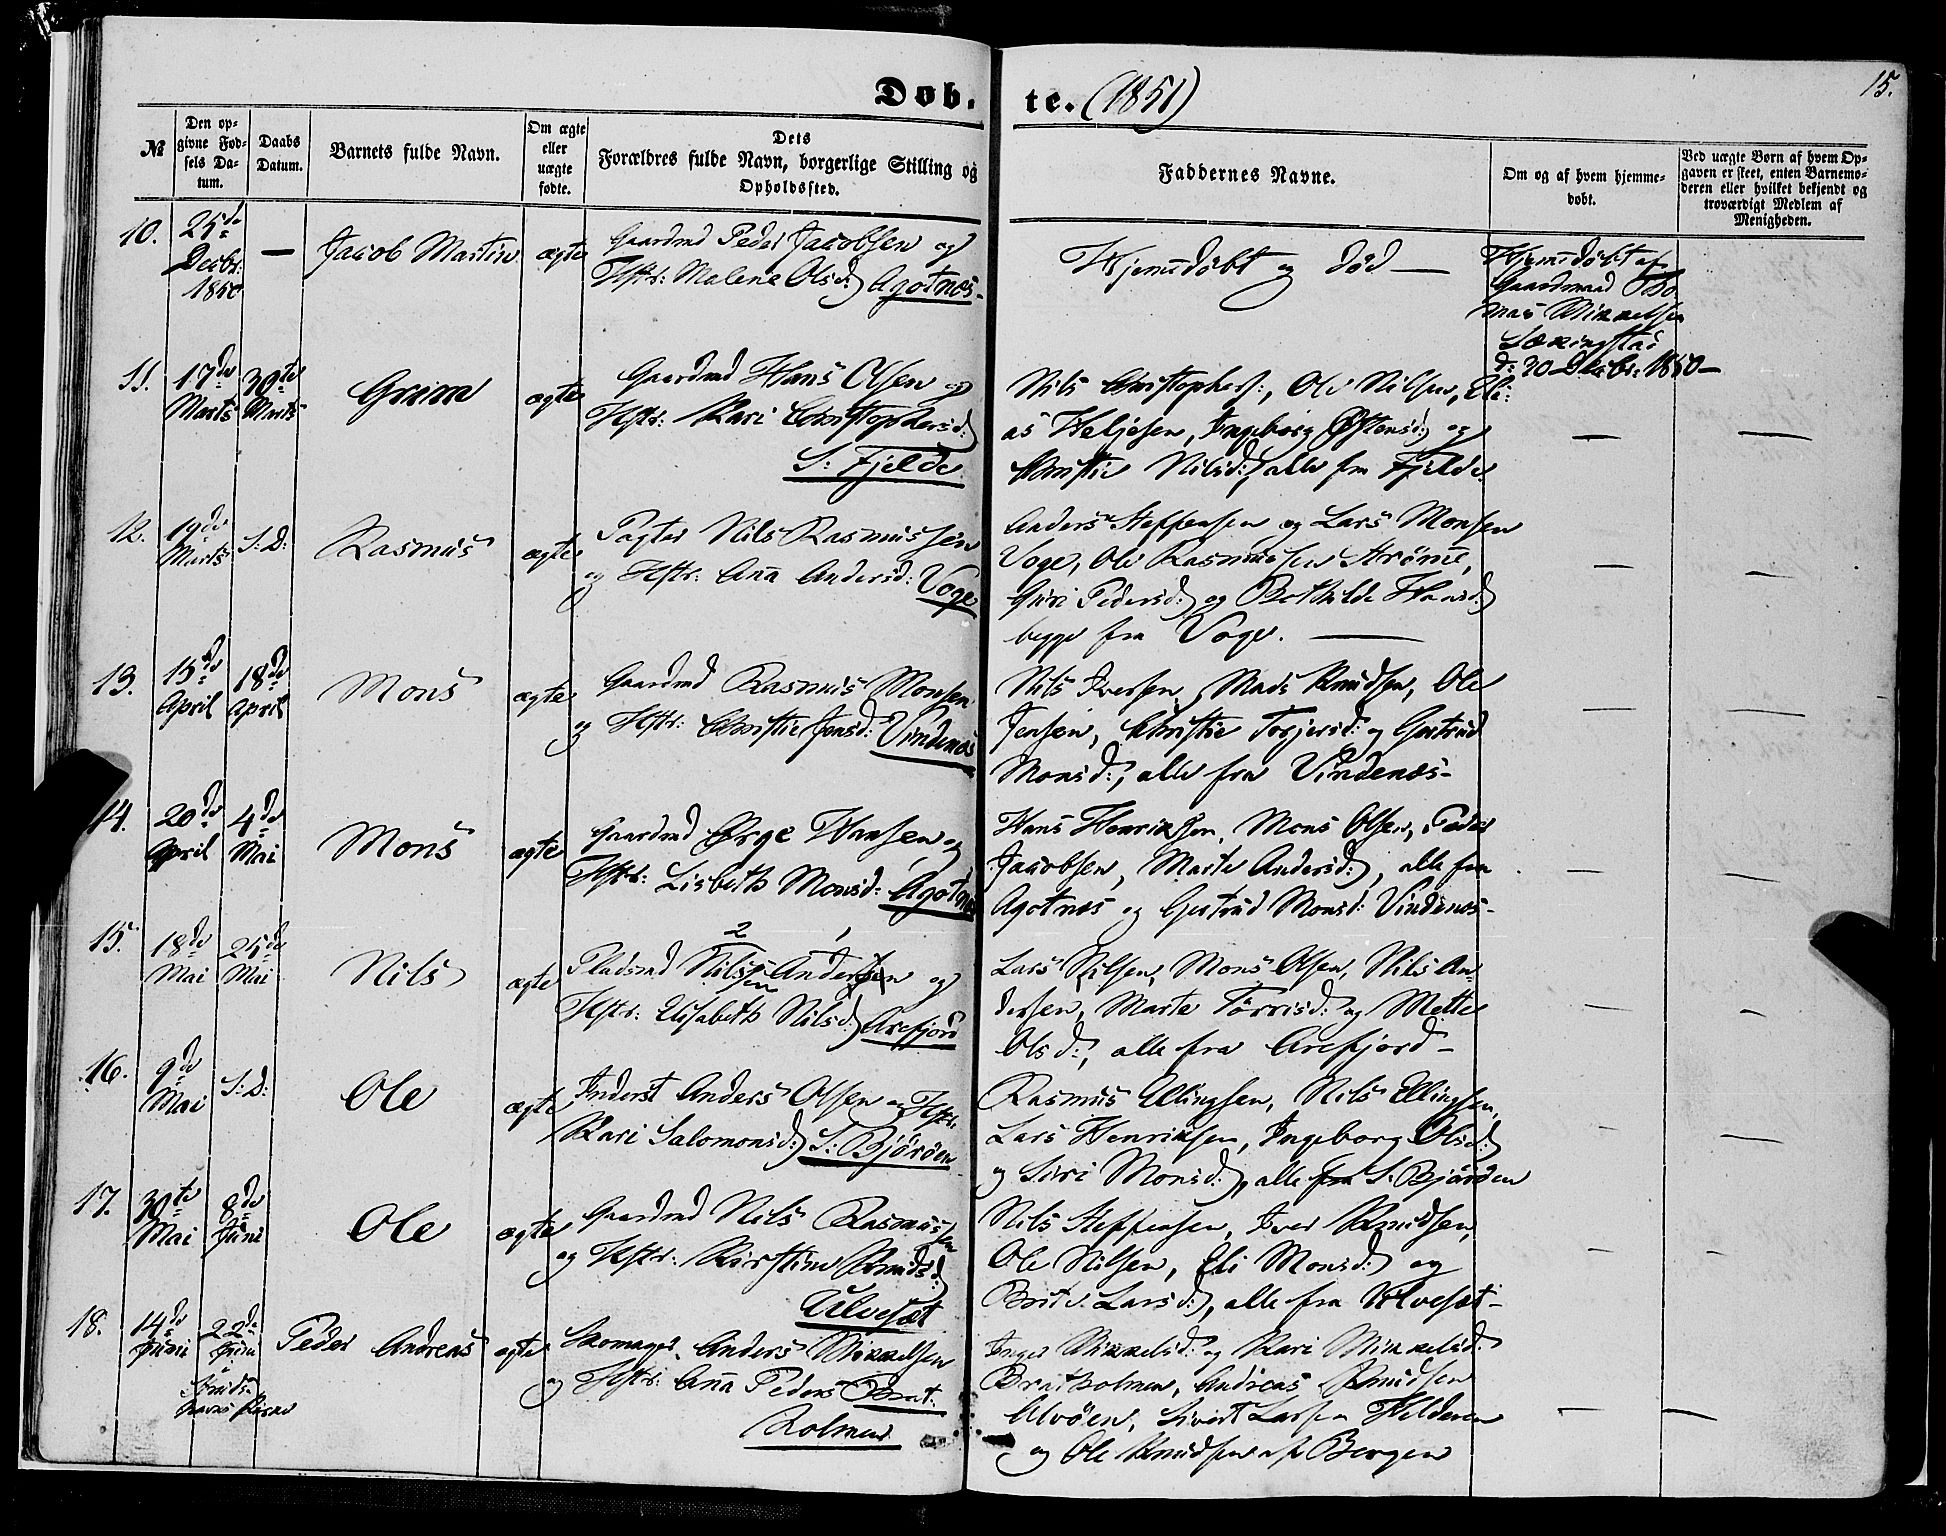 15.
Døb. te. (1851)
№
Den op-
givne Fød-
sels Da-
tum.
Daabs
Datum.
Barnets fulde Navn.
Om ægte
eller
uægte
fødte.
Dets
Forældres fulde Navn, borgerlige Stilling og
Opholdssted.
Faddernes Navne.
Om og af hvem hjemme-
døbt.
Ved uægte Børn af hvem Op-
gaven er skeet, enten Barnemo-
deren eller hvilket bekjendt og
troværdigt Medlem af
Menigheden.
10.
25de
Decbr:
1850
—
Jacob Martin
ægte
Gaardmd Peder Jacobsen og
Hstr: Malene Olsd: Agotnes-
Hjemmdøbt og død —
Hjemmdøbt af
Gaardmand Tho
mas Mikkelsen
Sækingstad
d: 30 Decbr: 1850 —
11.
17de
Marts
30te
Marts
Grim
ægte
Gaardmd Hans Olsen og
Hstr: Kari Christophersd:
S: Fjelde
Nils Christophers:, Ole Nilsen, Eli-
as Heljesen, Ingeborg Østensd: og
Christie Nilsd:, alle fra Fjelde.
—
—
12.
19de
Marts
S: D:
Rasmus
ægte
Pagter Nils Rasmussen
og Hstr: Anna Andersd: Voge
Anders Steffensen og Lars Monsen
Voge, Ole Rasmussen Strømme,
Guri Pedersd: og Bothilde Hansd:
begge fra Voge. —
—
—
13.
15de
April
18de
April
Mons
ægte
Gaardmd Rasmus Monsen
og Hstr: Christie Jensd: Vindenæs
Nils Iversen, Mads Knudsen, Ole
Jensen, Christie Torjersd: og Gertrud
Monsd:, alle fra Vindenæs-
—
—
14.
20de
April
4de
Mai
Mons
ægte
Gaardmd Ørge Hansen og
Hstr: Lisbeth Monsd: Agotnes
Hans Henriksen, Mons Olsen, Peder
Jacobsen, Marte Andersd:, alle fra
Agotnes og Gertrud Monsd: Vindenæs-
—
—
15.
18de
Mai
25de
Mai
Nils
ægte
2 1
Pladsmd Nilssen Andersen og
Hstr: Elisabeth Nilsd: Arefjord
Lars Nilsen, Mons Olsen, Nils An-
dersen, Marte Tørrisd: og Mette
Olsd:, alle fra Arefjord-
—
—
16.
9de
Mai
S: D:
Ole
ægte
Inderst Anders Olsen og Hstr.
Kari Salomonsd: S: Bjørøen
Rasmus Ellingsen, Nils Ellingsen,
Lars Henriksen, Ingeborg Olsd:
og Siri Monsd:, alle fra S. Bjørøen
—
—
17.
30te
Mai
8de
Juni
Ole
ægte
Gaardmd Nils Rasmussen
og Hstr: Kirstine Knudsd:
Ulvesæt
Nils Steffensen, Iver Knudsen,
Ole Nilsen, Eli Monsd: og
Brite Larsd:, alle fra Ulvesæt-
—
—
18.
14de
Juni
22de
Juni
Peder Andreas
ægte
Skomager Anders Mikkelsen
og Hstr: Anna Peders Brat-
holmen
Inger Mikkelsd: og Kari Mikkelsd:
Bratholmen, Andreas Knudsen
Alvøen, Sivert Larsen Hilderen
og Ole Knudsen af Bergen
—
—